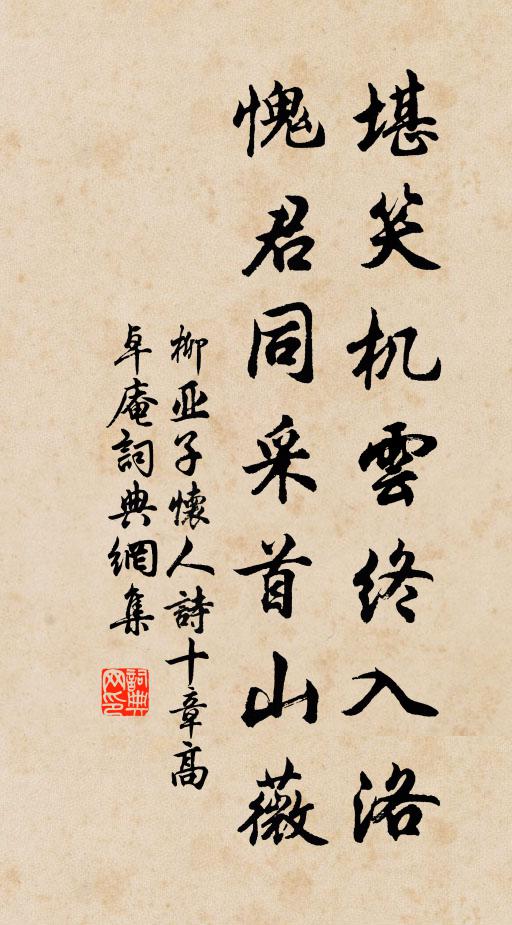 堪笑机雲終入洛
愧君同采首山薇
柳亚子懷人詩十章高
卓庵詞典網集
詞典网印